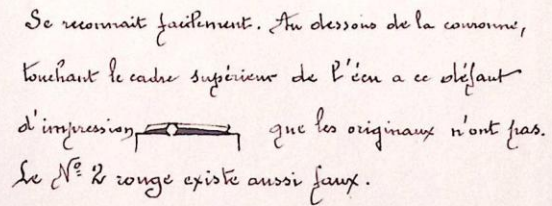 Se reconnait facilement. Au dessous de la couronne,
touchant le cadre supérieur de l'écu a ce défaut
d'impression que les originaux n'ont pas.
Le Nº 2 rouge existe aussi faux.